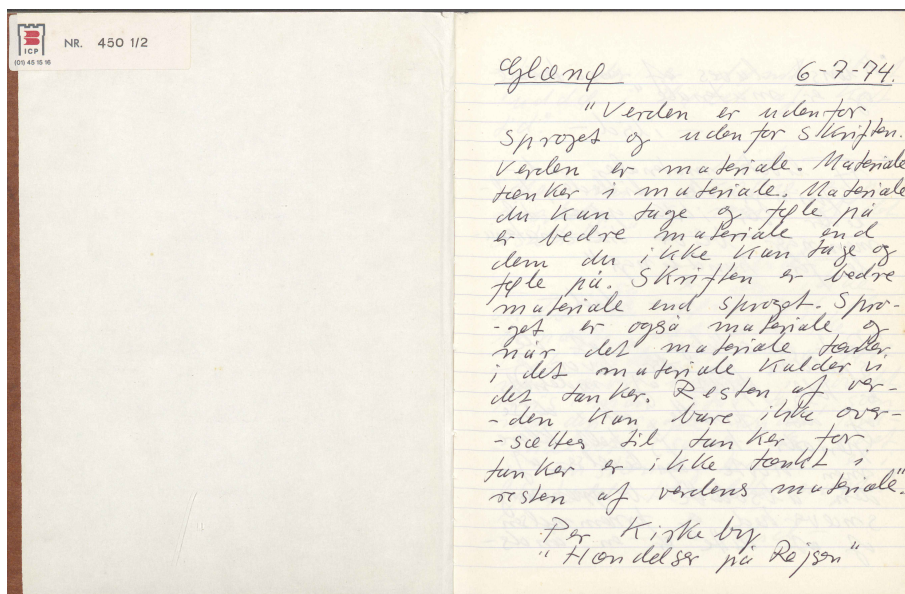 ICP
(01) 45 15 16
NR. 450 1/2
Glænø 6-7-74.
"Verden er udenfor
sproget og udenfor skriften.
Verden er materiale. Materiale
tænker i materiale. Materiale
du kan tage og føle på
er bedre materiale end
dem du ikke kan tage og
føle på. Skriften er bedre
materiale end sproget. Spro-
-get er også materiale og
når det materiale tænker
i det materiale kalder vi
det tanker. Resten af ver-
-den kan bare ikke over-
-sættes til tanker for
tanker er ikke tænkt i
resten af verdens materiale."
Per Kirkeby
"Hændelser på Rejsen"